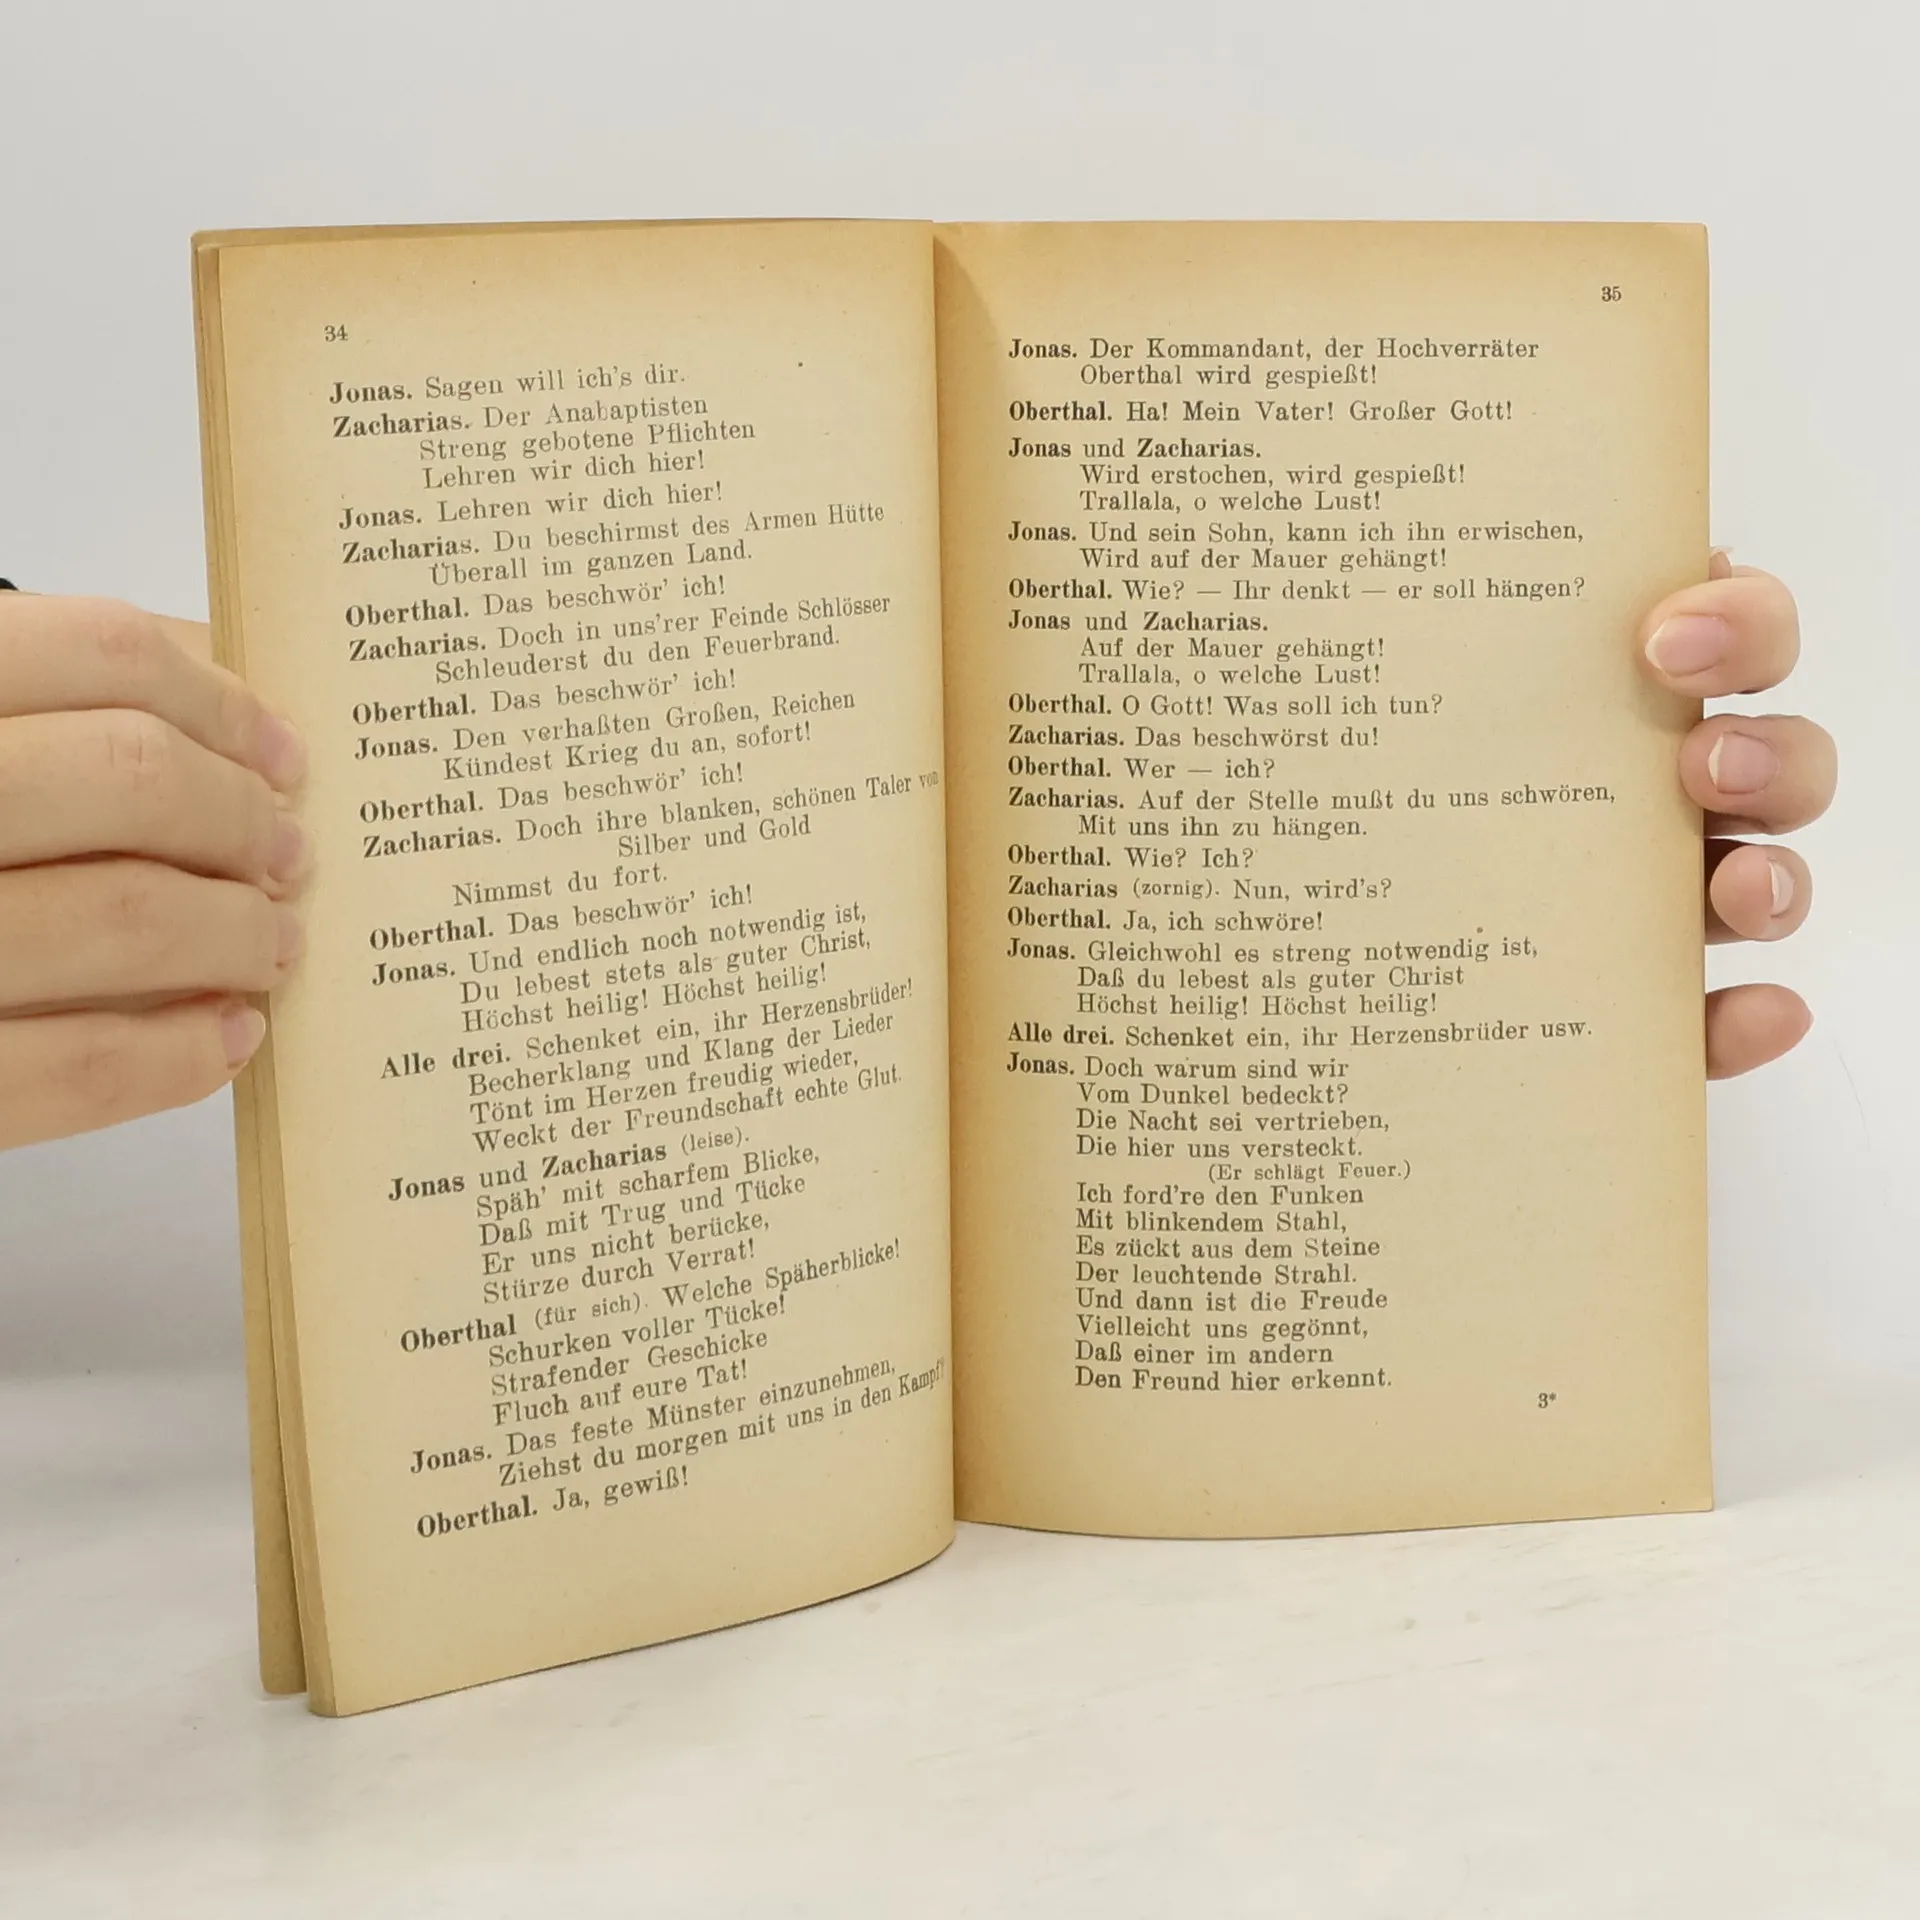 34
Jonas. Sagen will ich's dir.
Zacharias. Der Anabaptisten
Streng gebotene Pflichten
Lehren wir dich hier!
Jonas. Lehren wir dich hier!
Zacharias. Du beschirmst des Armen Hütte
Überall im ganzen Land.
Oberthal. Das beschwör' ich!
Zacharias. Doch in uns'rer Feinde Schlösser
Schleuderst du den Feuerbrand.
Oberthal. Das beschwör' ich!
Jonas. Den verhaßten Großen, Reichen
Kündest Krieg du an, sofort!
Oberthal. Das beschwör' ich!
Zacharias. Doch ihre blanken, schönen Taler von
Silber und Gold
Nimmst du fort.
Oberthal. Das beschwör' ich!
Jonas. Und endlich noch notwendig ist,
Du lebest stets als guter Christ,
Höchst heilig! Höchst heilig!
Alle drei. Schenket ein, ihr Herzensbrüder!
Becherklang und Klang der Lieder
Tönt im Herzen freudig wieder,
Weckt der Freundschaft echte Glut.
Jonas und Zacharias (leise).
Späh' mit scharfem Blicke,
Daß mit Trug und Tücke
Er uns nicht berücke,
Stürze durch Verrat!
Oberthal (für sich). Welche Späherblicke!
Schurken voller Tücke!
Strafender Geschicke
Fluch auf eure Tat!
Jonas. Das feste Münster einzunehmen,
Ziehst du morgen mit uns in den Kampf?
Oberthal. Ja, gewiß!
35
Jonas. Der Kommandant, der Hochverräter
Oberthal wird gespießt!
Oberthal. Ha! Mein Vater! Großer Gott!
Jonas und Zacharias.
Wird erstochen, wird gespießt!
Trallala, o welche Lust!
Jonas. Und sein Sohn, kann ich ihn erwischen,
Wird auf der Mauer gehängt!
Oberthal. Wie? — Ihr denkt — er soll hängen?
Jonas und Zacharias.
Auf der Mauer gehängt!
Trallala, o welche Lust!
Oberthal. O Gott! Was soll ich tun?
Zacharias. Das beschwörst du!
Oberthal. Wer — ich?
Zacharias. Auf der Stelle mußt du uns schwören,
Mit uns ihn zu hängen.
Oberthal. Wie? Ich?
Zacharias (zornig). Nun, wird's?
Oberthal. Ja, ich schwöre!
Jonas. Gleichwohl es streng notwendig ist,
Daß du lebest als guter Christ
Höchst heilig! Höchst heilig!
Alle drei. Schenket ein, ihr Herzensbrüder usw.
Jonas. Doch warum sind wir
Vom Dunkel bedeckt?
Die Nacht sei vertrieben,
Die hier uns versteckt.
(Er schlägt Feuer.)
Ich ford're den Funken
Mit blinkendem Stahl,
Es zückt aus dem Steine
Der leuchtende Strahl.
Und dann ist die Freude
Vielleicht uns gegönnt,
Daß einer im andern
Den Freund hier erkennt.
3*